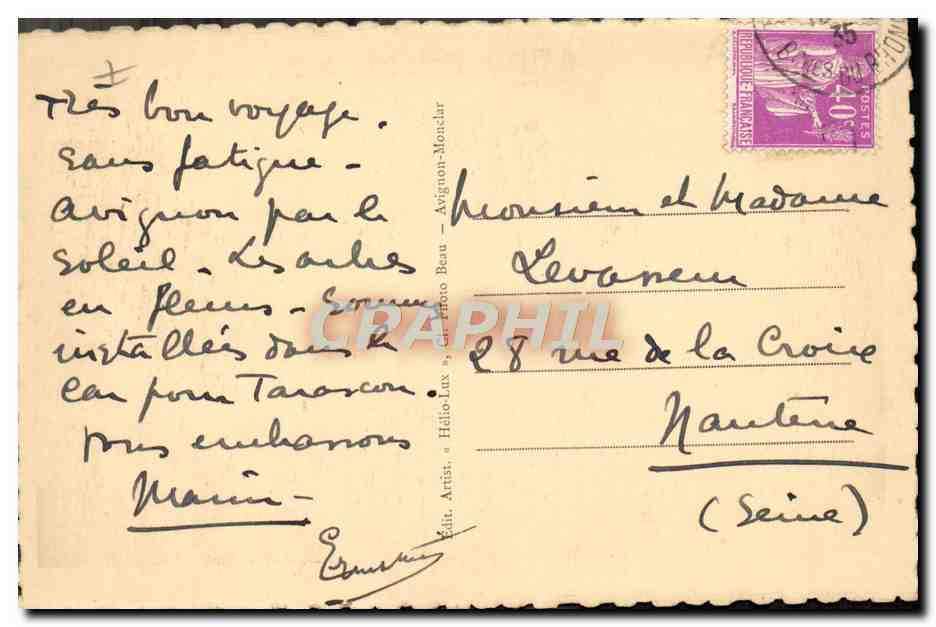 Très bon voyage.
sans fatigue -
Avignon par le
soleil - Les arbres
en fleurs - Sommes
installées dans le
car pour Tarascon.
Vous embrassons
Édit. Artist. « Hélio-Lux », Cl. Photo Beau — Avignon-Monclar
RÉPUBLIQUE FRANÇAISE
40c
POSTES
35
RHON
Monsieur et Madame
Levasseur
28 rue de la Croix
Nanterre
(Seine)
CPAPHIL